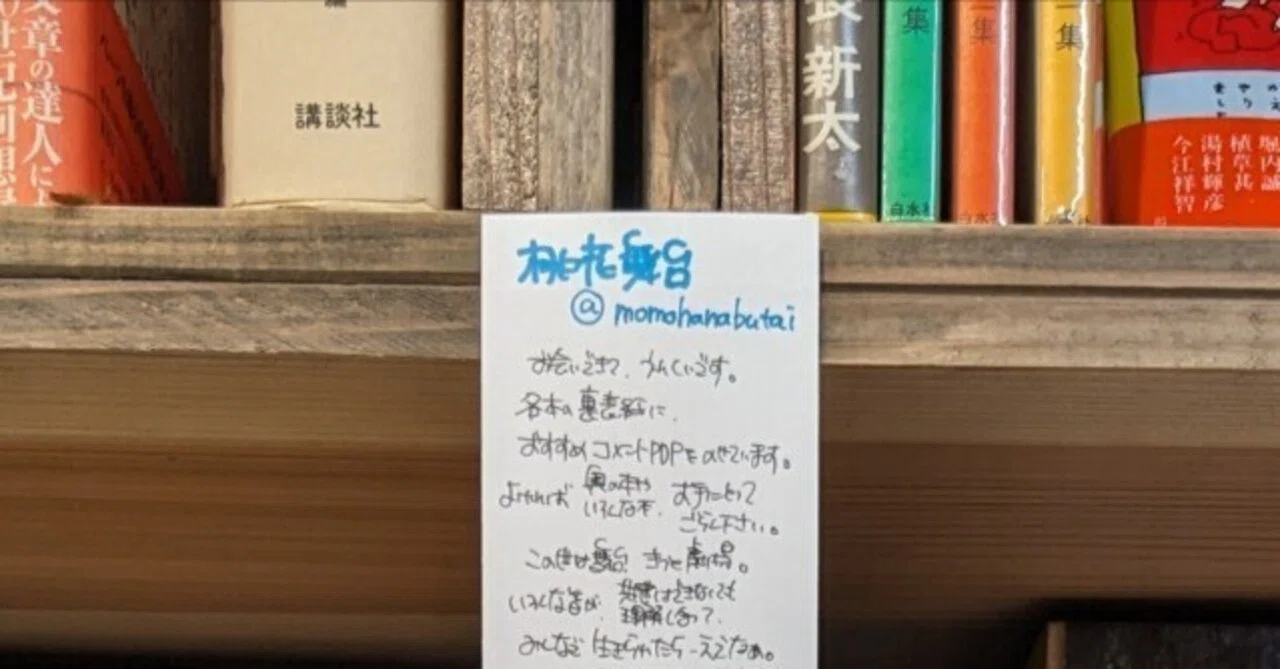 文章の達人に
講談社
長新太
集
一集
一集
白水社
堀内誠
植草甚
湯村輝彦
今江祥智
桃花舞台
@momohanabutai
お会いできて、うれしいです。
各本の裏表紙に、
おすすめコメントPOPをのせています。
よければ 奥の本や いろんな本、お手にとって
ごらん下さい。
この世は舞台 きっと劇場。
いろんな皆が、共感はできなくても
理解し合って、
みんなで生きられたらええなぁ。